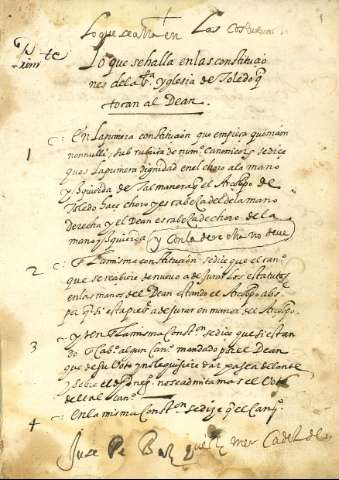 Lo que se alla en Las
Lo que se halla en las constituçio
nes de la sta. yglesia de Toledo q
tocan al Dean.
1 En la primera constituçion que empieça quoniam
nonnulli, sub rubrica de num. Canonicor. se dice
que la primera dignidad en el choro a la mano
yzquierda de tal manera q el Arçobpo. de
Toledo haçe choro y es cabeça del de la mano
derecha y el Dean es cabeça de choro de la
mano yzquierda,
2 En la misma constituçion se dice que el can.
que se reçibiere de nuevo a de jurar los estatutos
en las manos del Dean estando el Arçobpo. abs
a de jurar en manos del Arçobpo.
3 y en la misma Const.on se dice que si estan
do en Cab.o algun Can.o mandado por el Dean
que de su Voto y no le quisiere dar pasen adelante
y sobre el no se admita mas el Voto
de tal can.o
4 En la misma Const.on se dize q el Can.